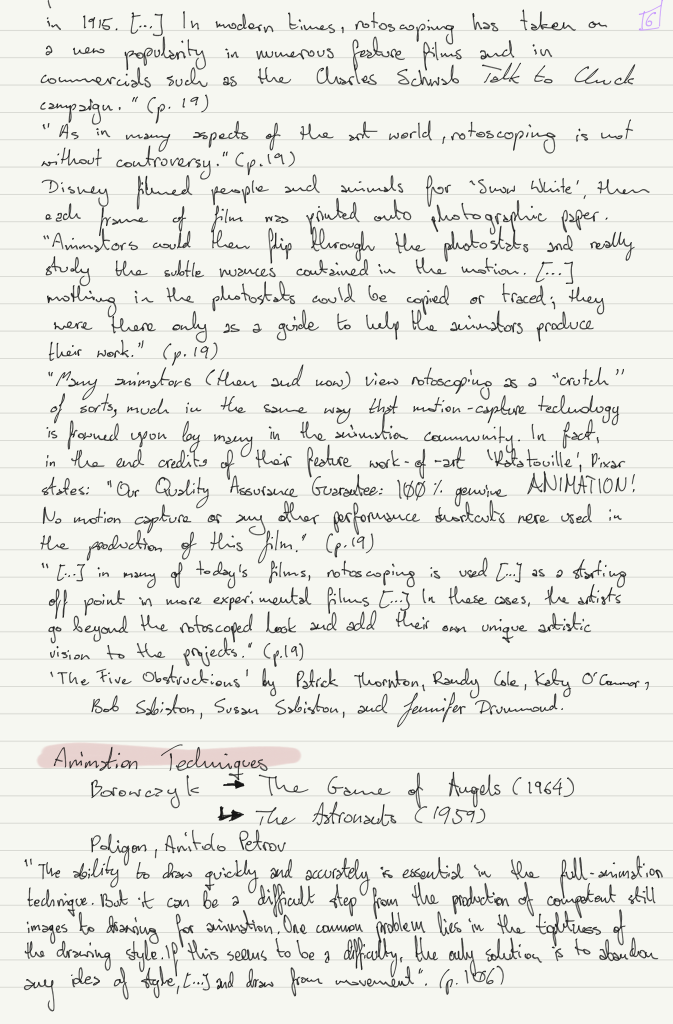 in 1915. [...] In modern times, rotoscoping has taken on
16
a new popularity in numerous feature films and in
commercials such as the Charles Schwab Talk to Chuck
campaign." (p. 19)
"As in many aspects of the art world, rotoscoping is not
without controversy." (p.19)
Disney filmed people and animals for 'Snow White', then
each frame of film was printed onto photographic paper.
"Animators would then flip through the photostats and really
study the subtle nuances contained in the motion. [...]
nothing in the photostats would be copied or traced; they
were there only as a guide to help the animators produce
their work." (p. 19)
"Many animators (then and now) view rotoscoping as a "crutch"
of sorts, much in the same way that motion-capture technology
is frowned upon by many in the animation community. In fact,
in the end credits of their feature work-of-art 'Ratatouille', Pixar
states: "Our Quality Assurance Guarantee: 100% genuine ANIMATION!
No motion capture or any other performance shortcuts were used in
the production of this film." (p.19)
"[...] in many of today's films, rotoscoping is used [...] as a starting
off point in more experimental films [...] In these cases, the artists
go beyond the rotoscoped look and add their own unique artistic
vision to the projects." (p.19)
'The Five Obstructions' by Patrick Thornton, Randy Cole, Katy O'Connor,
Bob Sabiston, Susan Sabiston, and Jennifer Drummond.
Animation Techniques
Borowczyk → The Game of Angels (1964)
↳ The Astronauts (1959)
Poligon, Anitolo Petrov
"The ability to draw quickly and accurately is essential in the full-animation
technique. But it can be a difficult step from the production of competent still
images to drawing for animation. One common problem lies in the tightness of
the drawing style. If this seems to be a difficulty, the only solution is to abandon
any idea of style, [...] and draw from movement". (p. 106)